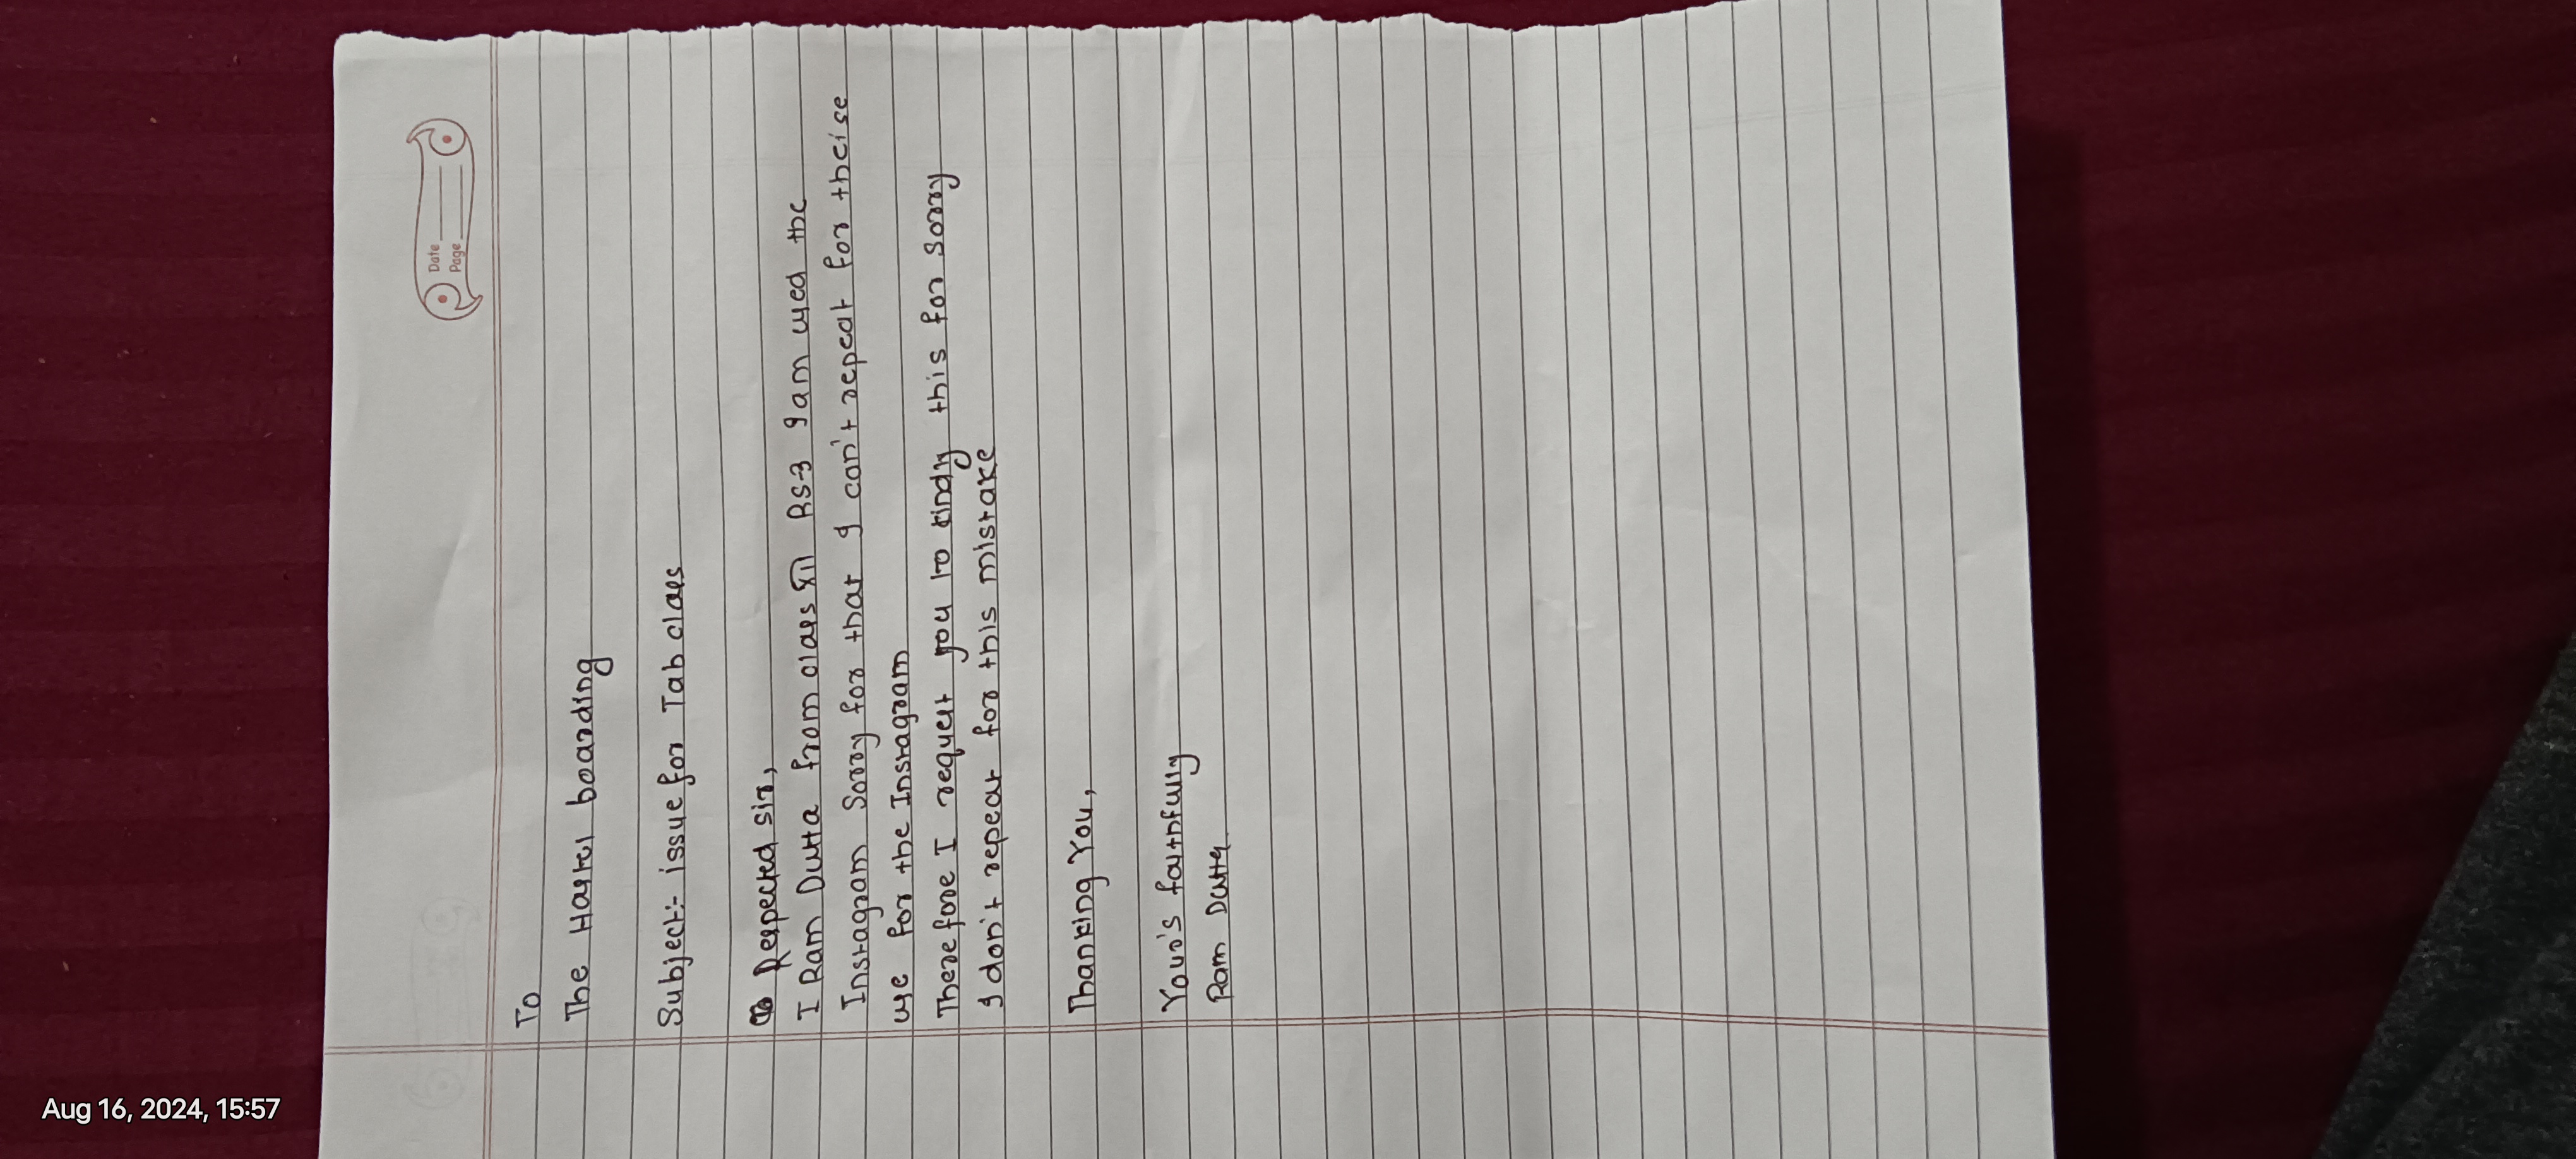 Date
Page
To
The Hastel boarding
Subject:- issue for Tab class
Respected sir,
I Ram Dutta from class XII RS-3 I am used the
Instagram Sorry for that I can't repeat for theise
use for the Instagram
Therefore I request you to kindy this for sorry
I don't repeat for this mistake
Thanking You,
Your's faithfully
Ram Dutta
Aug 16, 2024, 15:57